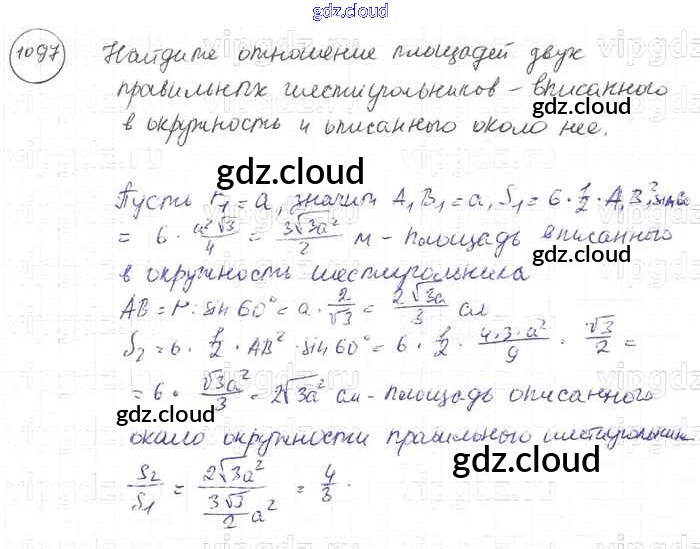 gdz.cloud
1097 Найдите отношение площадей двух
правильных шестиугольников – вписанного
в окружность и описанного около нее.
gdz.cloud
gdz.cloud
Пусть r₁ = a, значит A₁B₁ = a, S₁ = 6 · 1/2 · A₁B₁² sin 60
= 6 · a²√3/4 = 3√3a²/2 м – площадь вписанного
в окружность шестиугольника
AB = r : sin 60° = a · 2/√3 = 2√3a/3 см
gdz.cloud
S₂ = 6 · 1/2 · AB² · sin 60° = 6 · 1/2 · 4·3·a²/9 · √3/2 =
= 6 · √3a²/3 = 2√3a² см – площадь описанного
gdz.cloud
gdz.cloud
около окружности правильного шестиугольник
S₂/S₁ = 2√3a² / (3√3/2 a²) = 4/3.
gdz.cloud
gdz.cloud